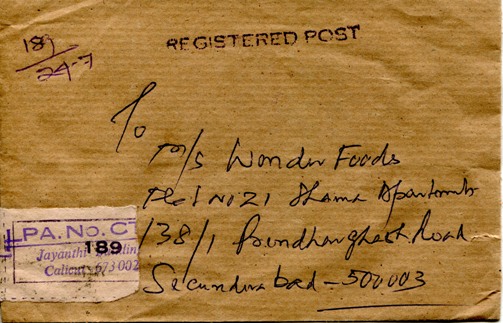 189
24-7
REGISTERED POST
To
M/s Wonder Foods
Flat No 21 Shama Apartments
138/1 Road
Secunderabad - 500003
L PA. No. C
189
Jayanthi Buildin
Calicut-673 002